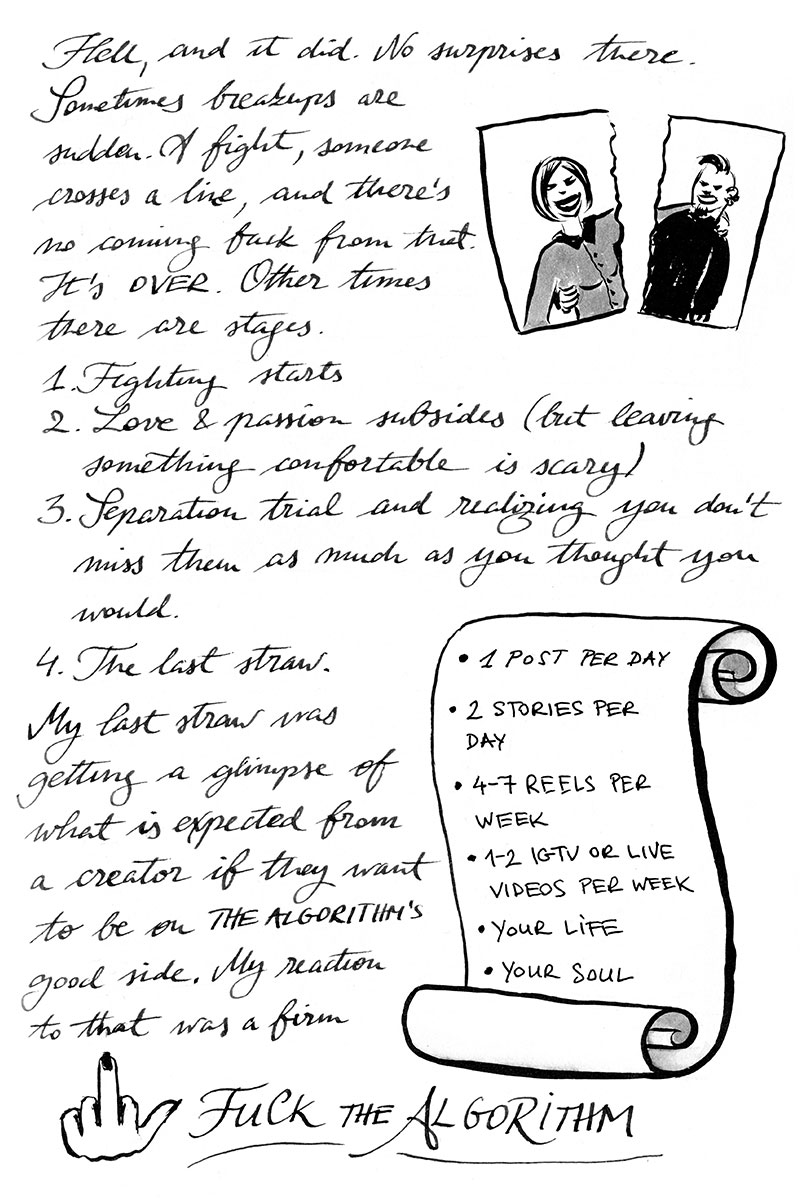 Hell, and it did. No surprises there.
Sometimes breakups are
sudden. A fight, someone
crosses a line, and there's
no coming back from that.
It's OVER. Other times
there are stages.
1. Fighting starts
2. Love & passion subsides (but leaving
something confortable is scary)
3. Separation trial and realizing you don't
miss them as much as you thought you
would.
4. The last straw.
My last straw was
getting a glimpse of
what is expected from
a creator if they want
to be on THE ALGORITHM'S
good side. My reaction
to that was a firm
FUCK THE ALGORITHM
• 1 POST PER DAY
• 2 STORIES PER
DAY
• 4-7 REELS PER
WEEK
• 1-2 IGTV OR LIVE
VIDEOS PER WEEK
• YOUR LIFE
• YOUR SOUL